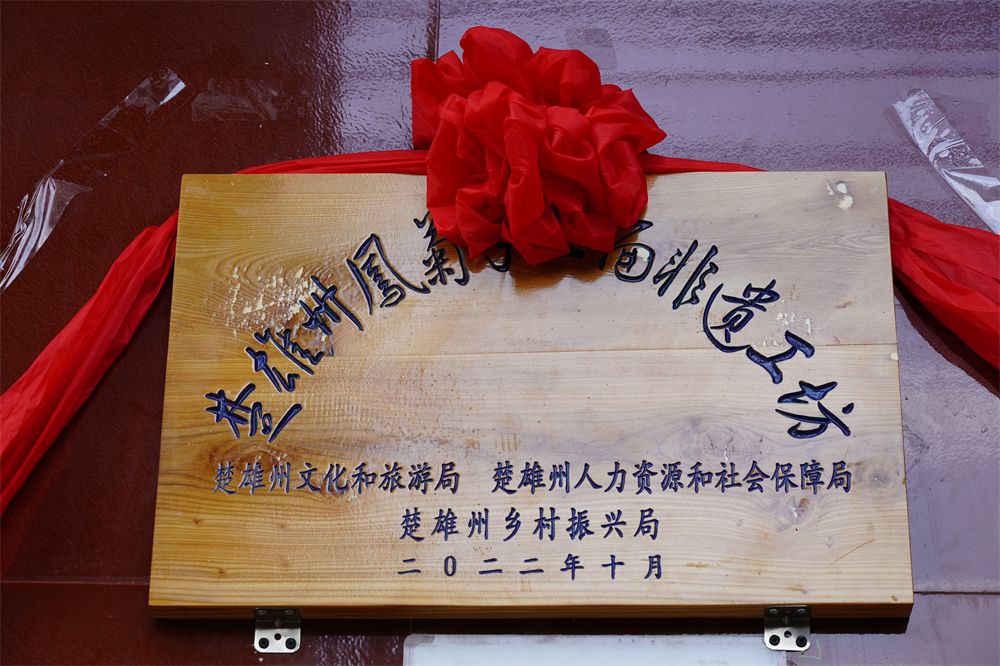 楚雄州鳳菊面非遗工坊
楚雄州文化和旅游局 楚雄州人力资源和社会保障局
楚雄州乡村振兴局
二〇二二年十月